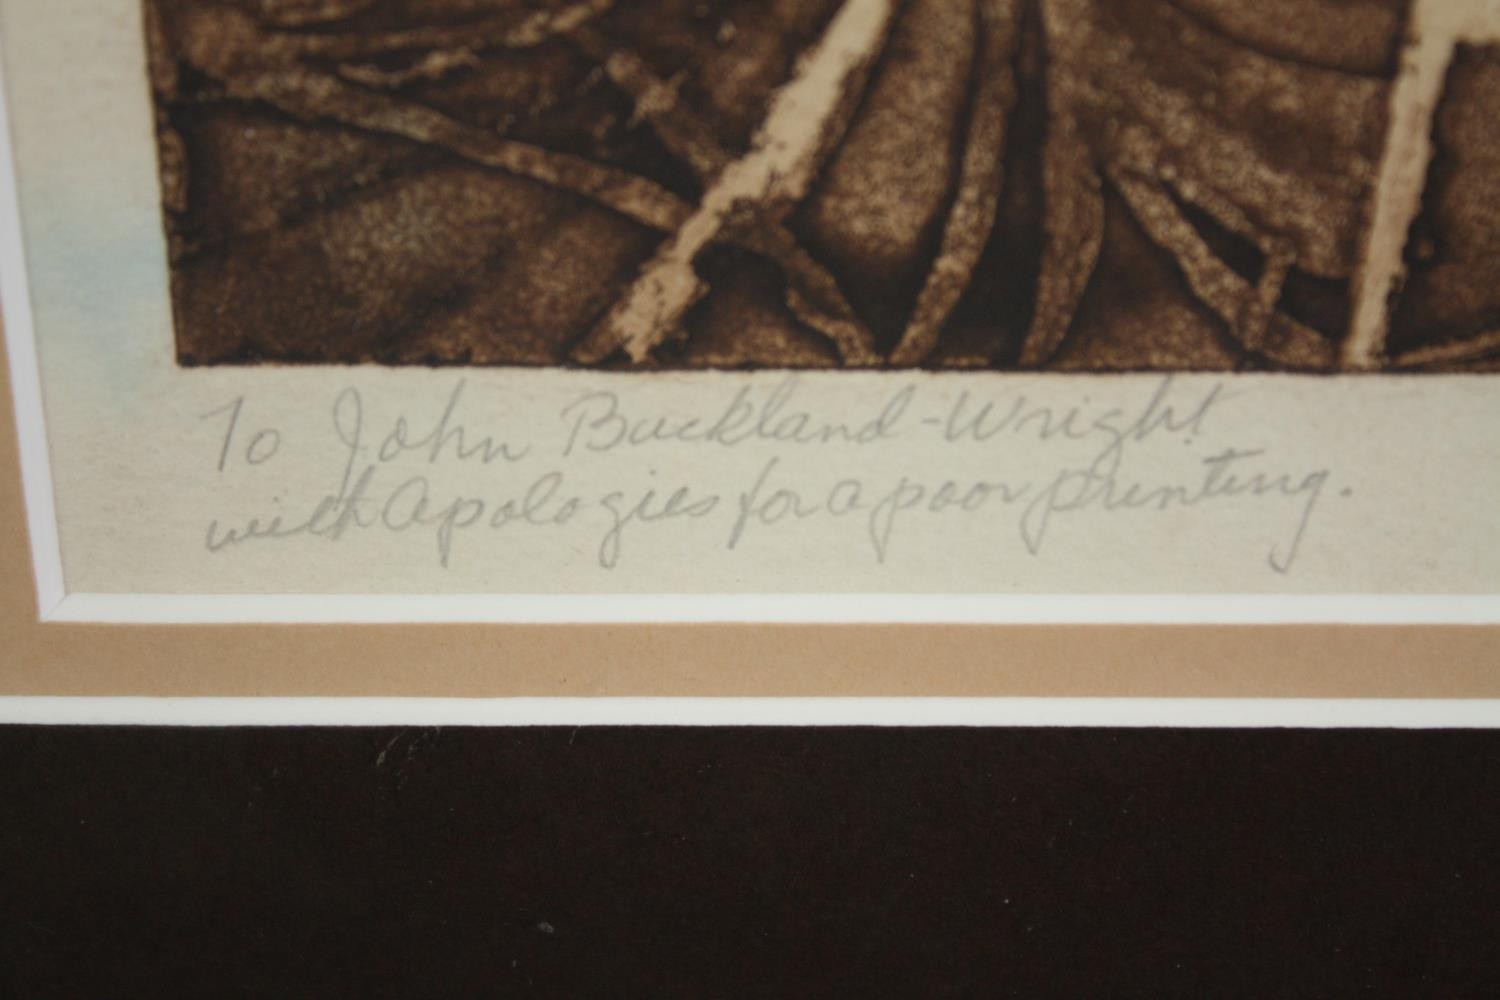 To John Buckland-Wright
with apologies for a poor printing.